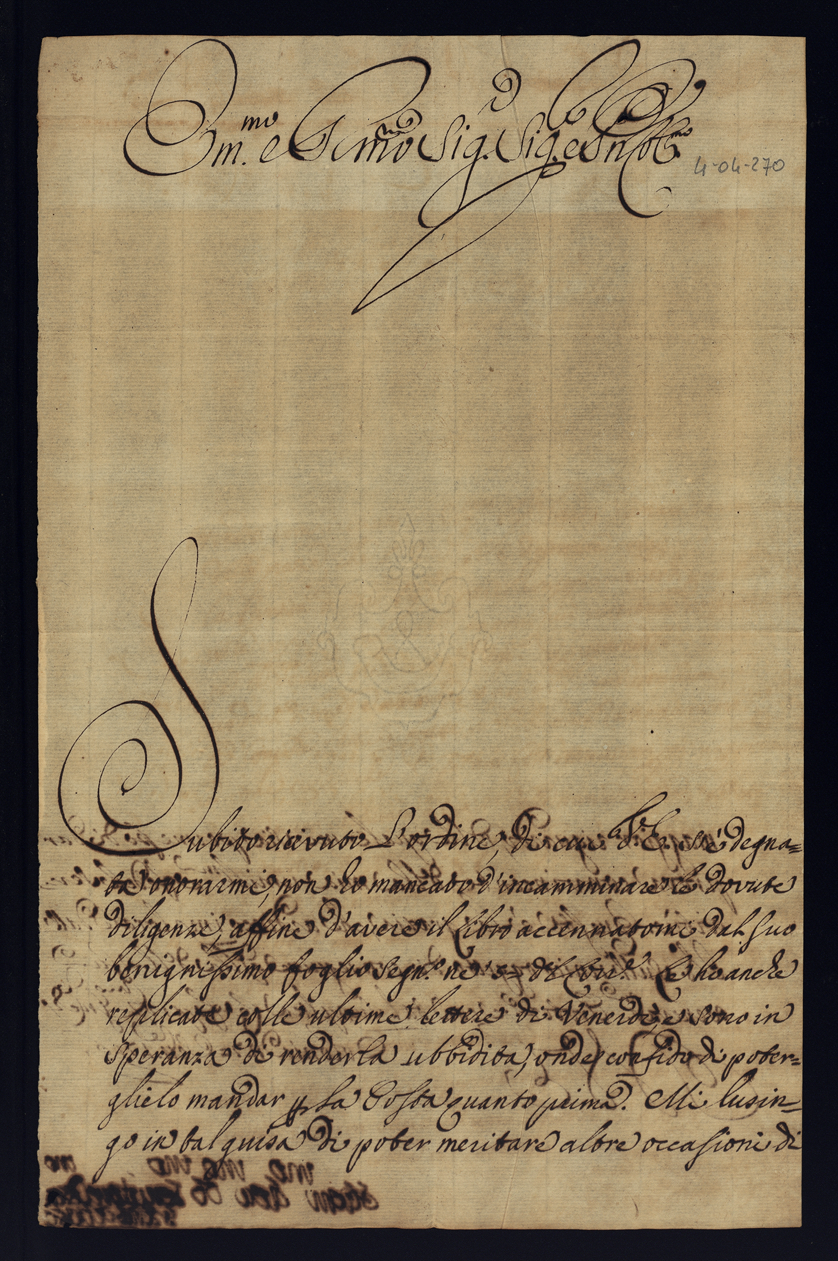 Em.mo e R.mo Sig. Sig. e
4-04-270
Subito ricevuto l'ordine, di cui s'è degna=
ta onorarmi, non ho mancato d'incamminare le dovute
diligenze, affine d'avere il Libro accennatomi dal suo
benignissimo foglio segn.to ne Le ho anche
replicate colle ultime lettere di Venerdì, e sono in
speranza di renderla ubbidita, onde confido di poter=
glielo mandar p la Posta quanto prima. Mi lusin=
go in tal guisa di poter meritare altre occasioni di